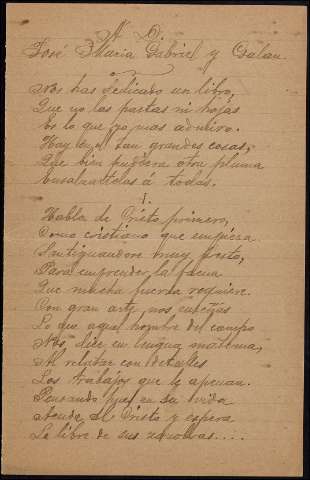 A D.
José María Gabriel y Galan.
Nos has dedicado un libro,
Que yo las pastas ni hojas
Es lo que yo mas admiro.
Hay en el tan grandes cosas,
Que bien pudiera otra pluma
Ensalzartelas á todas.
I.
Habla de Cristo primero,
Como cristiano que empieza
Santiguandose muy presto,
Para emprender la faena
Que mucha fuerza requiere.
Con gran arte, nos enseñas
Lo que aquel hombre del campo
Nos dice en lengua materna,
Al relatar con detalles
Los trabajos que le apenan.
Pensando que en su vida
Acude al Cristo y espera
Le libre de sus